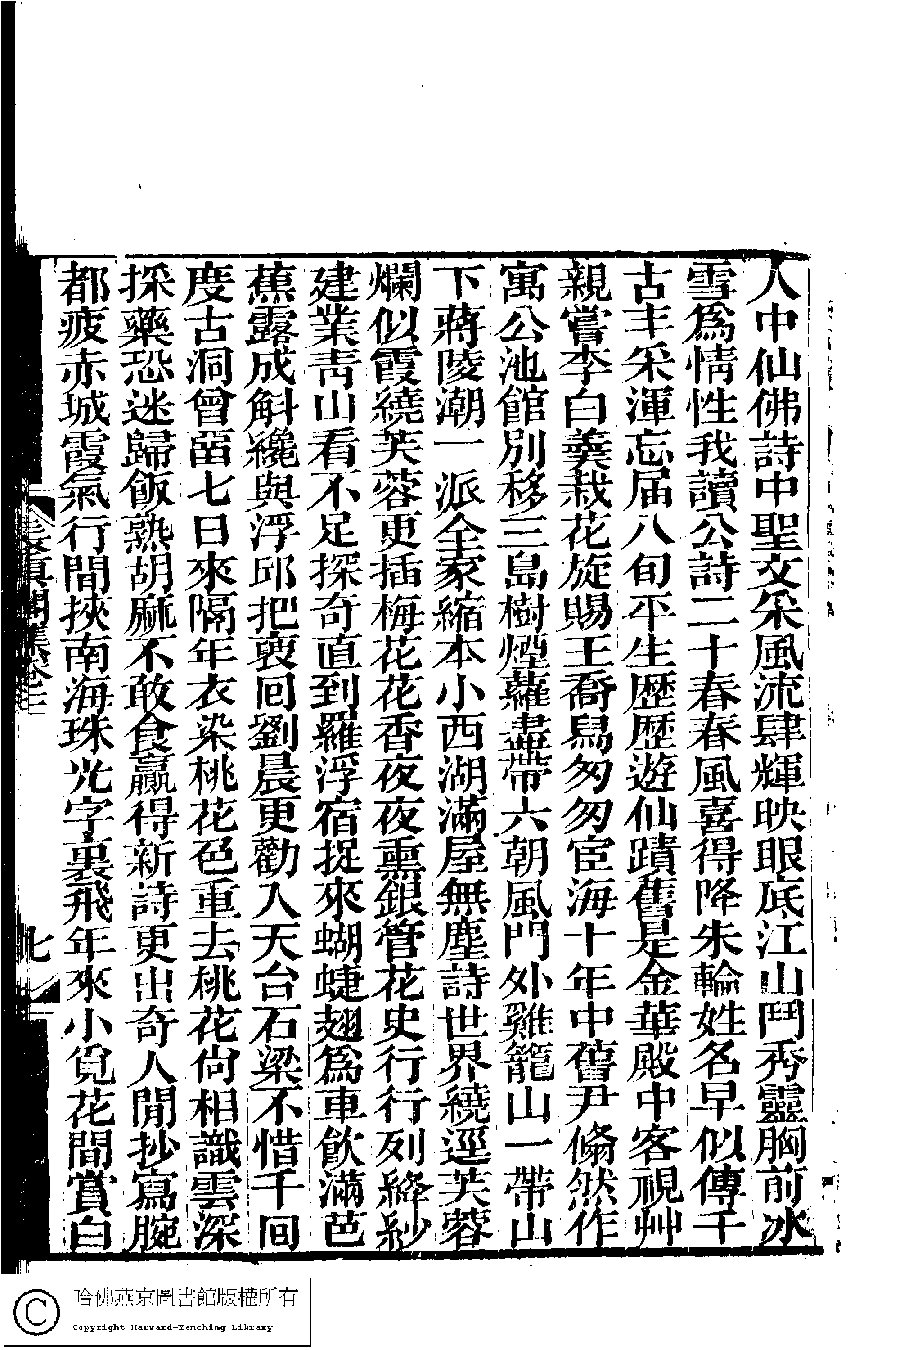 人中仙佛詩中聖文采風流肆輝映眼底江山鬥秀靈胸前冰
雪爲情性我讀公詩二十春春風喜得降朱輪姓名早似傳千
古丰采渾忘届八旬平生歷歷遊仙蹟舊是金華殿中客視艸
親嘗李白羹栽花旋賜王喬舄匆匆宦海十年中舊尹翛然作
寓公池館別移三島樹煙蘿盡帶六朝風門外雞籠山一帶山
下蔣陵潮一派全家縮本小西湖滿屋無塵詩世界繞逕芙蓉
爛似霞繞芙蓉更插梅花花香夜夜熏銀管花史行行列絳紗
建業青山看不足探奇直到羅浮宿捉來蝴蜨翅爲車飲滿芭
蕉露成斛纔與浮邱把袂囘劉晨更勸入天台石梁不惜千囘
度古洞曾畱七日來隔年衣染桃花色重去桃花尙相識雲深
採藥恐迷歸飯熟胡麻不敢食贏得新詩更出奇人閒抄寫腕
都疲赤城霞氣行間挾南海珠光字裏飛年來小覓花間賞白
卷二
九
哈佛燕京圖書館版權所有
Copyright Harvard-Yenching Library